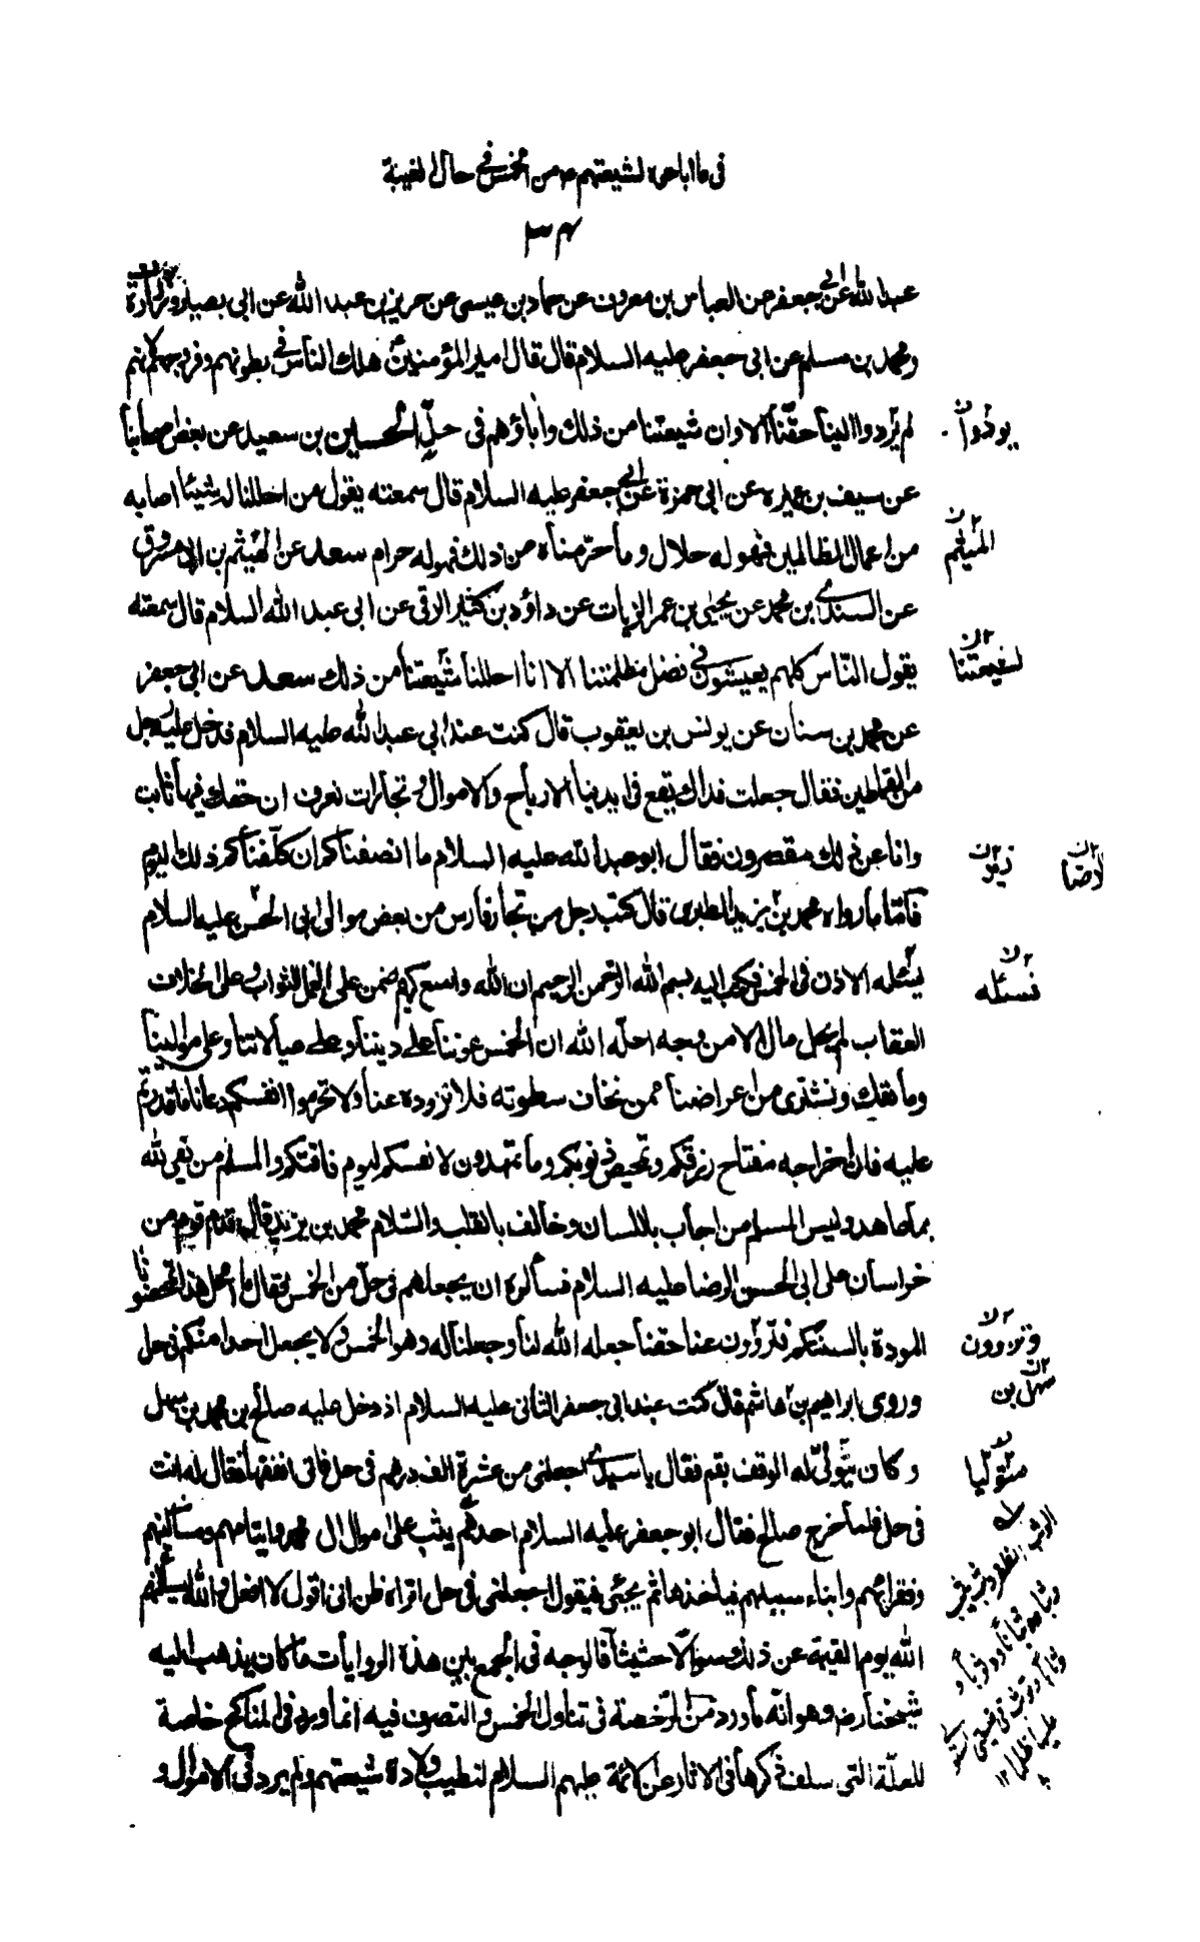 فى ما اباحوه لشيعتهم ع من الخمس فى حال الغيبة
٣٤
عبد الله عن ابى جعفر عن العباس بن معروف عن حماد بن عيسى عن حريز بن عبد الله عن ابى بصير و زرارة
ومحمد بن مسلم عن ابى جعفر عليه السلام قال قال امير المؤمنين ع هلك الناس فى بطونهم وفروجهم لانهم
لم يردوا الينا حقنا الا وان شيعتنا من ذلك وأباؤهم فى حلّ الحسين بن سعيد عن بعض اصحابنا
يؤدوا ن
عن سيف بن عميره عن ابى حمزة عن ابى جعفر عليه السلام قال سمعته يقول من احللنا له شيئا اصابه
من اعمال الظالمين فهو له حلال وما حرّمناه من ذلك فهو له حرام سعد عن الهيثم بن ابى مسروق
الميثم ن
عن السندى بن محمد عن يحيى بن عمر الزيات عن داؤد بن كثير الرقى عن ابى عبد الله السلام قال سمعته
يقول النّاس كلهم يعيشون فى فضل مظلمتنا الا انا احللنا شيعتنا من ذلك سعد عن ابى جعفر
لشيعتنا ن
عن محمد بن سنان عن يونس بن يعقوب قال كنت عند ابى عبد الله عليه السلام فدخل عليه رجل
من القماطين فقال جعلت فداك يقع فى ايدينا الارباح والاموال و تجارات نعرف ان حقك فيها ثابت
وانا عن ذلك مقصرون فقال ابو عبد الله عليه السلام ما انصفناكم ان كلّفناكم ذلك اليوم
فأمّا ما رواه محمد بن يزيد الطبرى قال كتب رجل من تجار فارس من بعض موالى ابى الحسن عليه السلام
زيد ن
الرضا ن
يسئله الاذن فى الخمس فكتب اليه بسم الله الرحمن الرحيم ان الله واسع كريم ضمن على العمل الثواب وعلى الخلاف
نسئله
العقاب لم يحل مال الا من وجه احلّه الله ان الخمس عوننا على ديننا وعلى عيالاتنا وعلى موالينا
وما نفك ونشترى من اعراضنا ممن نخاف سطوته فلا تزووه عنا ولا تحرموا انفسكم دعانا ما قدرتم
عليه فان اخراجه مفتاح رزقكم وتمحيص ذنوبكم وما تمهدون لانفسكم ليوم فاقتكم والمسلم من يفى لله
بما عاهد وليس المسلم من اجاب باللسان وخالف بالقلب والسّلام محمد بن يزيد قال قدم قوم من
خراسان على ابى الحسن الرضا عليه السلام فسألوه ان يجعلهم فى حلّ من الخمس فقال ما امحل هذا تمحضونا
المودة بالسنتكم وتزوون عنا حقنا جعله الله لنا وجعلنا له وهو الخمس لا يجعل احدا منكم فى حل
وتزوون
وروى ابراهيم بن هاشم قال كنت عند ابى جعفر الثانى عليه السلام اذ دخل عليه صالح بن محمد بن سهل
سهل بن
وكان يتولىّ له الوقف بقم فقال يا سيدى اجعلنى من عشرة الف درهم فى حل فانى انفقتها فقال له انت
متوليا
فى حل فلما خرج صالح فقال ابو جعفر عليه السلام احدهم يثب على اموال ال محمد وايتامهم ومساكينهم
وفقرائهم وابناء سبيلهم فيأخذها ثم يجئ فيقول اجعلنى فى حل اتراه ظن انى اقول لا افعل والله ليسئلنهم
الله يوم القيمة عن ذلك سؤالّا حثيثا فالوجه فى الجمع بين هذه الروايات ما كان يذهب اليه
شيخنا رض وهو انّه ما ورد من الرّخصة فى تناول الخمس و التصرف فيه انما ورد فى المناكح خاصة
للعلّة التى سلف ذكرها فى الاثار عن الائمة عليهم السلام لتطيب ولادة شيعتهم ولم يرد فى الاموال و